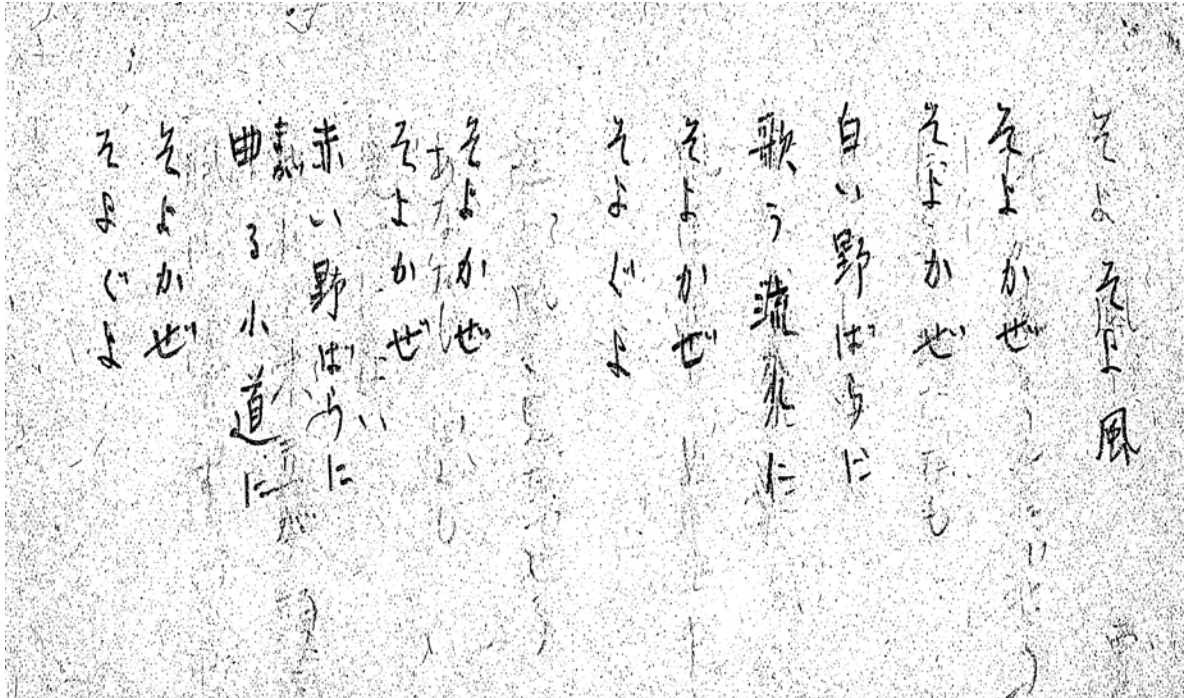 そよ そよ風
そよかぜ
そよかぜ
白い野ばらに
歌う流れに
そよかぜ
そよぐよ
そよかぜ
そよかぜ
赤い野ばらに
曲る小道に
そよかぜ
そよぐよ